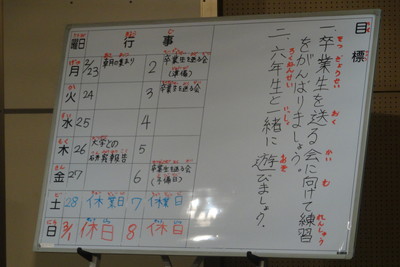 目標
一、卒業生を送る会に向けて練習
をがんばりましょう。
二、六年生と一緒に遊びましょう。
曜 行事
月 2/23 2 卒業生を送る会
(準備)
火 24 3 卒業生を送る会
水 25 4
木 26 大学との 5
共同研究報告
金 27 6 卒業生を送る会
(予備日)
土 28 休業日 7 休業日
日 3/1 休日 8 休日